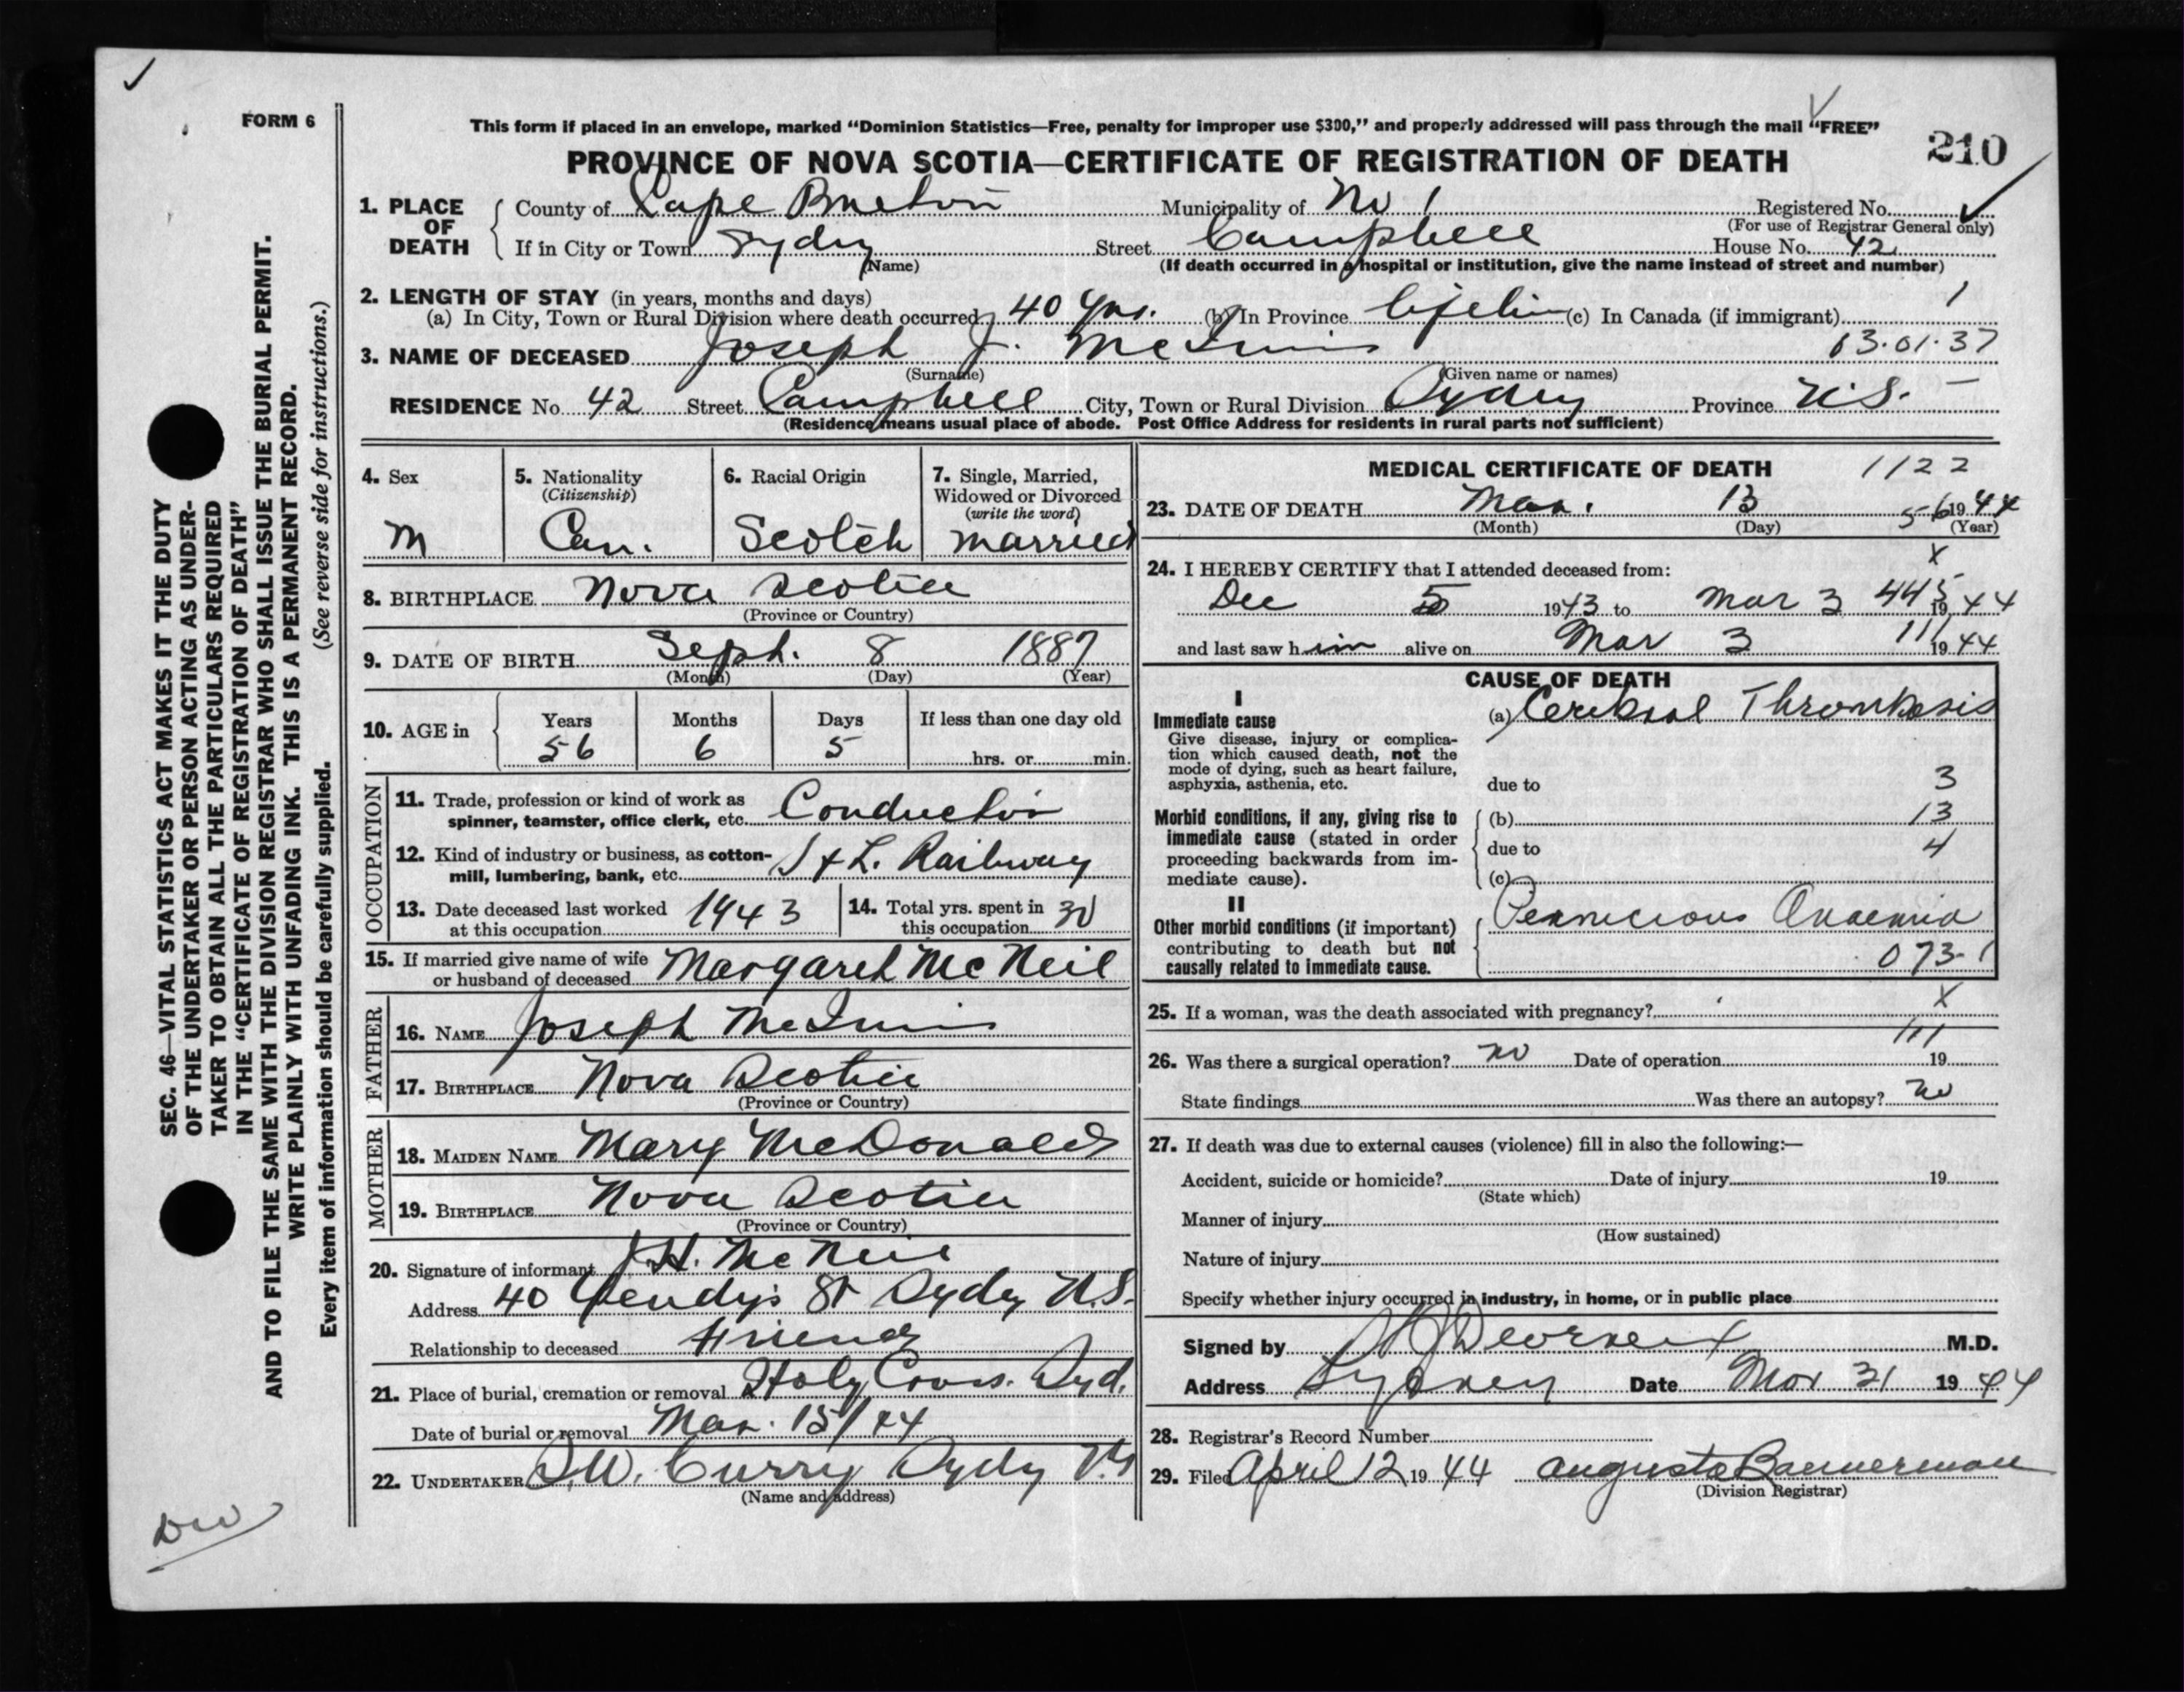 FORM 6
This form if placed in an envelope, marked “Dominion Statistics—Free, penalty for improper use $300,” and properly addressed will pass through the mail “FREE”
210
PROVINCE OF NOVA SCOTIA—CERTIFICATE OF REGISTRATION OF DEATH
1. PLACE OF DEATH
County of Cape Breton Municipality of No 1 Registered No.
(For use of Registrar General only)
If in City or Town Sydney Street Campbell House No. 42
(Name) (If death occurred in a hospital or institution, give the name instead of street and number)
2. LENGTH OF STAY (in years, months and days) 1
(a) In City, Town or Rural Division where death occurred 40 yrs. (b) In Province lifetime (c) In Canada (if immigrant)
3. NAME OF DECEASED Joseph J. McInnis 13·01·37
(Surname) (Given name or names)
RESIDENCE No. 42 Street Campbell City, Town or Rural Division Sydney Province N.S. —
(Residence means usual place of abode. Post Office Address for residents in rural parts not sufficient)
SEC. 46—VITAL STATISTICS ACT MAKES IT THE DUTY
OF THE UNDERTAKER OR PERSON ACTING AS UNDER-
TAKER TO OBTAIN ALL THE PARTICULARS REQUIRED
IN THE “CERTIFICATE OF REGISTRATION OF DEATH”
AND TO FILE THE SAME WITH THE DIVISION REGISTRAR WHO SHALL ISSUE THE BURIAL PERMIT.
WRITE PLAINLY WITH UNFADING INK. THIS IS A PERMANENT RECORD.
Every item of information should be carefully supplied. (See reverse side for instructions.)
4. Sex
M
5. Nationality
(Citizenship)
Can.
6. Racial Origin
Scotch
7. Single, Married,
Widowed or Divorced
(write the word)
married
8. BIRTHPLACE Nova Scotia
(Province or Country)
9. DATE OF BIRTH Sept. 8 1887
(Month) (Day) (Year)
10. AGE in
Years Months Days If less than one day old
56 6 5 hrs. or min.
OCCUPATION
11. Trade, profession or kind of work as
spinner, teamster, office clerk, etc. Conductor
12. Kind of industry or business, as cotton-
mill, lumbering, bank, etc. S & L. Railway
13. Date deceased last worked
at this occupation 1943
14. Total yrs. spent in
this occupation 30
15. If married give name of wife
or husband of deceased Margaret McNeil
FATHER
16. NAME Joseph McInnis
17. BIRTHPLACE Nova Scotia
(Province or Country)
MOTHER
18. MAIDEN NAME Mary McDonald
19. BIRTHPLACE Nova Scotia
(Province or Country)
20. Signature of informant J.H. McNeil
Address 40 St Sydney N.S.
Relationship to deceased Friend
21. Place of burial, cremation or removal Holy Cross. Syd.
Date of burial or removal Mar. 15/44
22. UNDERTAKER Curry Sydney N.S.
(Name and address)
MEDICAL CERTIFICATE OF DEATH 1122
23. DATE OF DEATH Mar. 13 56 1944
(Month) (Day) (Year)
24. I HEREBY CERTIFY that I attended deceased from: X
Dec 5 1943 to Mar 3 445 1944
and last saw him alive on Mar 3 111 1944
CAUSE OF DEATH
I
Immediate cause (a) Cerebral Thrombosis
Give disease, injury or complica-
tion which caused death, not the
mode of dying, such as heart failure,
asphyxia, asthenia, etc. due to 3
Morbid conditions, if any, giving rise to (b) 13
immediate cause (stated in order due to 4
proceeding backwards from im-
mediate cause). (c)
II
Other morbid conditions (if important) Pernicious Anaemia
contributing to death but not
causally related to immediate cause. 073·1
25. If a woman, was the death associated with pregnancy? X
111
26. Was there a surgical operation? no Date of operation 19
State findings Was there an autopsy? no
27. If death was due to external causes (violence) fill in also the following:—
Accident, suicide or homicide? Date of injury 19
(State which)
Manner of injury
(How sustained)
Nature of injury
Specify whether injury occurred in industry, in home, or in public place
Signed by M.D.
Address Sydney Date Mar 31 1944
28. Registrar's Record Number
29. Filed April 12 1944 Augusta Bannerman
(Division Registrar)